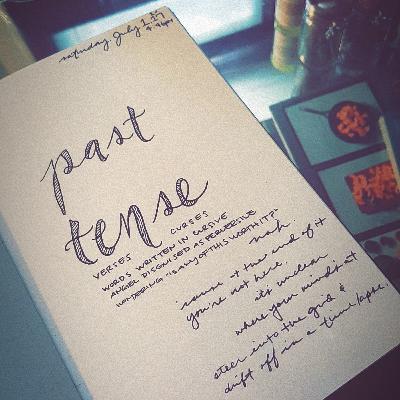 saturday. July 1. '17
9:49pm
past
tense
VERSES CURSES
WORDS WRITTEN IN CURSIVE
ANGEL DISGUISED AS PERVERSIVE
WONDERING "IS ANY OF THIS WORTH IT?"
nah.
'cause at the end of it
you're not here.
it's unclear
where your mind's at
steer into the grid &
drift off in a time/apse.